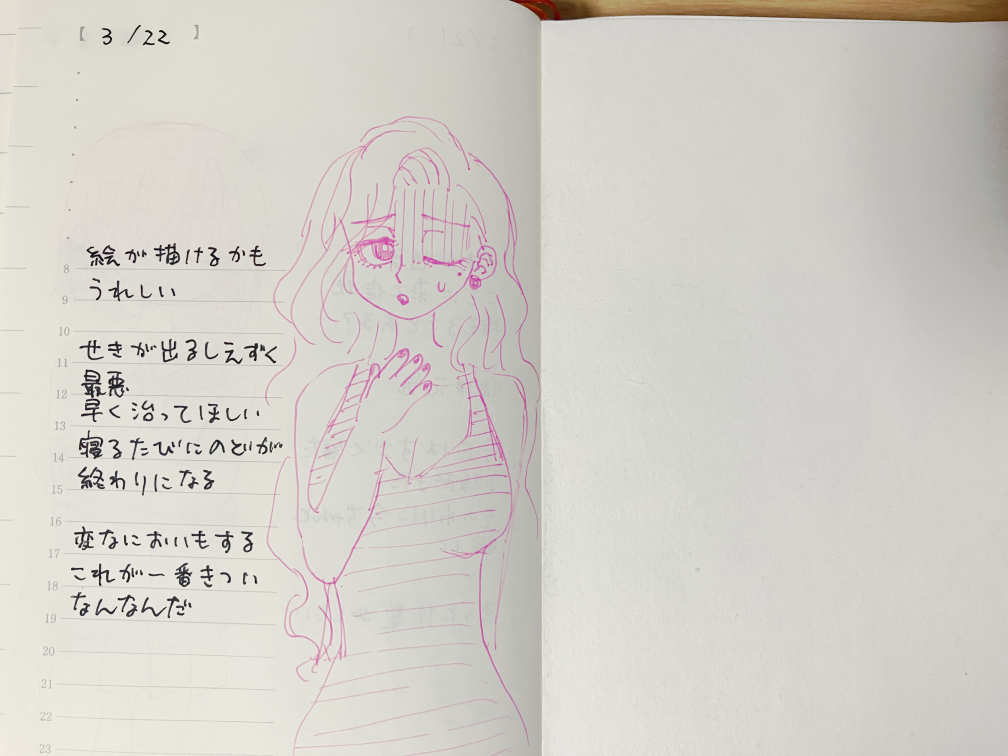 【 3/22 】
絵が描けるかも
うれしい
せきが出るしえずく
最悪
早く治ってほしい
寝るたびにのどが
終わりになる
変なにおいもする
これが一番きつい
なんなんだ
8
9
10
11
12
13
14
15
16
17
18
19
20
21
22
23